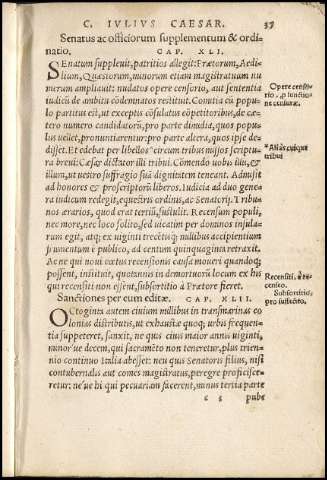 C. IVLIVS CAESAR. 37
Senatus ac officiorum supplementum & ordi-
natio. CAP. XLI.
SEnatum suppleuit, patritios allegit: Prætorum, Aedi-
lium, Quæstorum, minorum etiam magistratuum nu
merum ampliauit: nudatos opere censorio, aut sententia
iudicũ de ambitu cõdemnatos restituit. Comitia cũ popu-
lo partitut est, ut exceptis cõsulatus cõpetitoribus, de cæ-
tero numero candidatorũ, pro parte dimidia, quos popu-
lus uellet, pronuntiarentur: pro parte altera, quos ipse de-
disset. Et edebat per libellos circum tribus missos scriptu-
ra breui: Cæsar dictator illi tribui. Cõmendo uobis illũ, &
illum, ut uestro suffragio suã dignitatem teneant. Admisit
ad honores & proscriptorũ liberos. Iudicia ad duo gene-
ra iudicum redegit, equestris ordinis, ac Senatorij. Tribu-
nos ærarios, quod erat tertiũ, sustulit. Recensum populi,
nec more, nec loco solito, sed uicatim per dominos insula-
rum egit, atq; ex uiginti trecẽtisq; millibus accipientium
frumentum è publico, ad centum quinquaginta retraxit.
Ac ne qui noui cœtus recensionis causa moueri quandoq;
possent, instituit, quotannis in demortuorũ locum ex his
qui recensiti non essent, subsortitio à Prætore fieret.
Sanctiones per eum editæ. CAP. XLII.
OCtoginta autem ciuium millibus in transmarinas co
lonias distributis, ut exhaustæ quoq; urbis frequen-
tia suppeteret, sanxit, ne quis ciuis maior annis uiginti,
minor'ue decem, qui sacramẽto non teneretur, plus trien-
nio continuo Italia abesset: neu quis Senatoris filius, nisi
contubernalis aut comes magistratus, peregre proficisce-
retur: ne'ue hi qui pecuariam facerent, minus tertia parte
c 5 pube
Opere censo-
rio,
censuræ.
*Aliàs cuique
tribui
Recensiti, & re-
censio.
Subsortitio,
pro subscito.